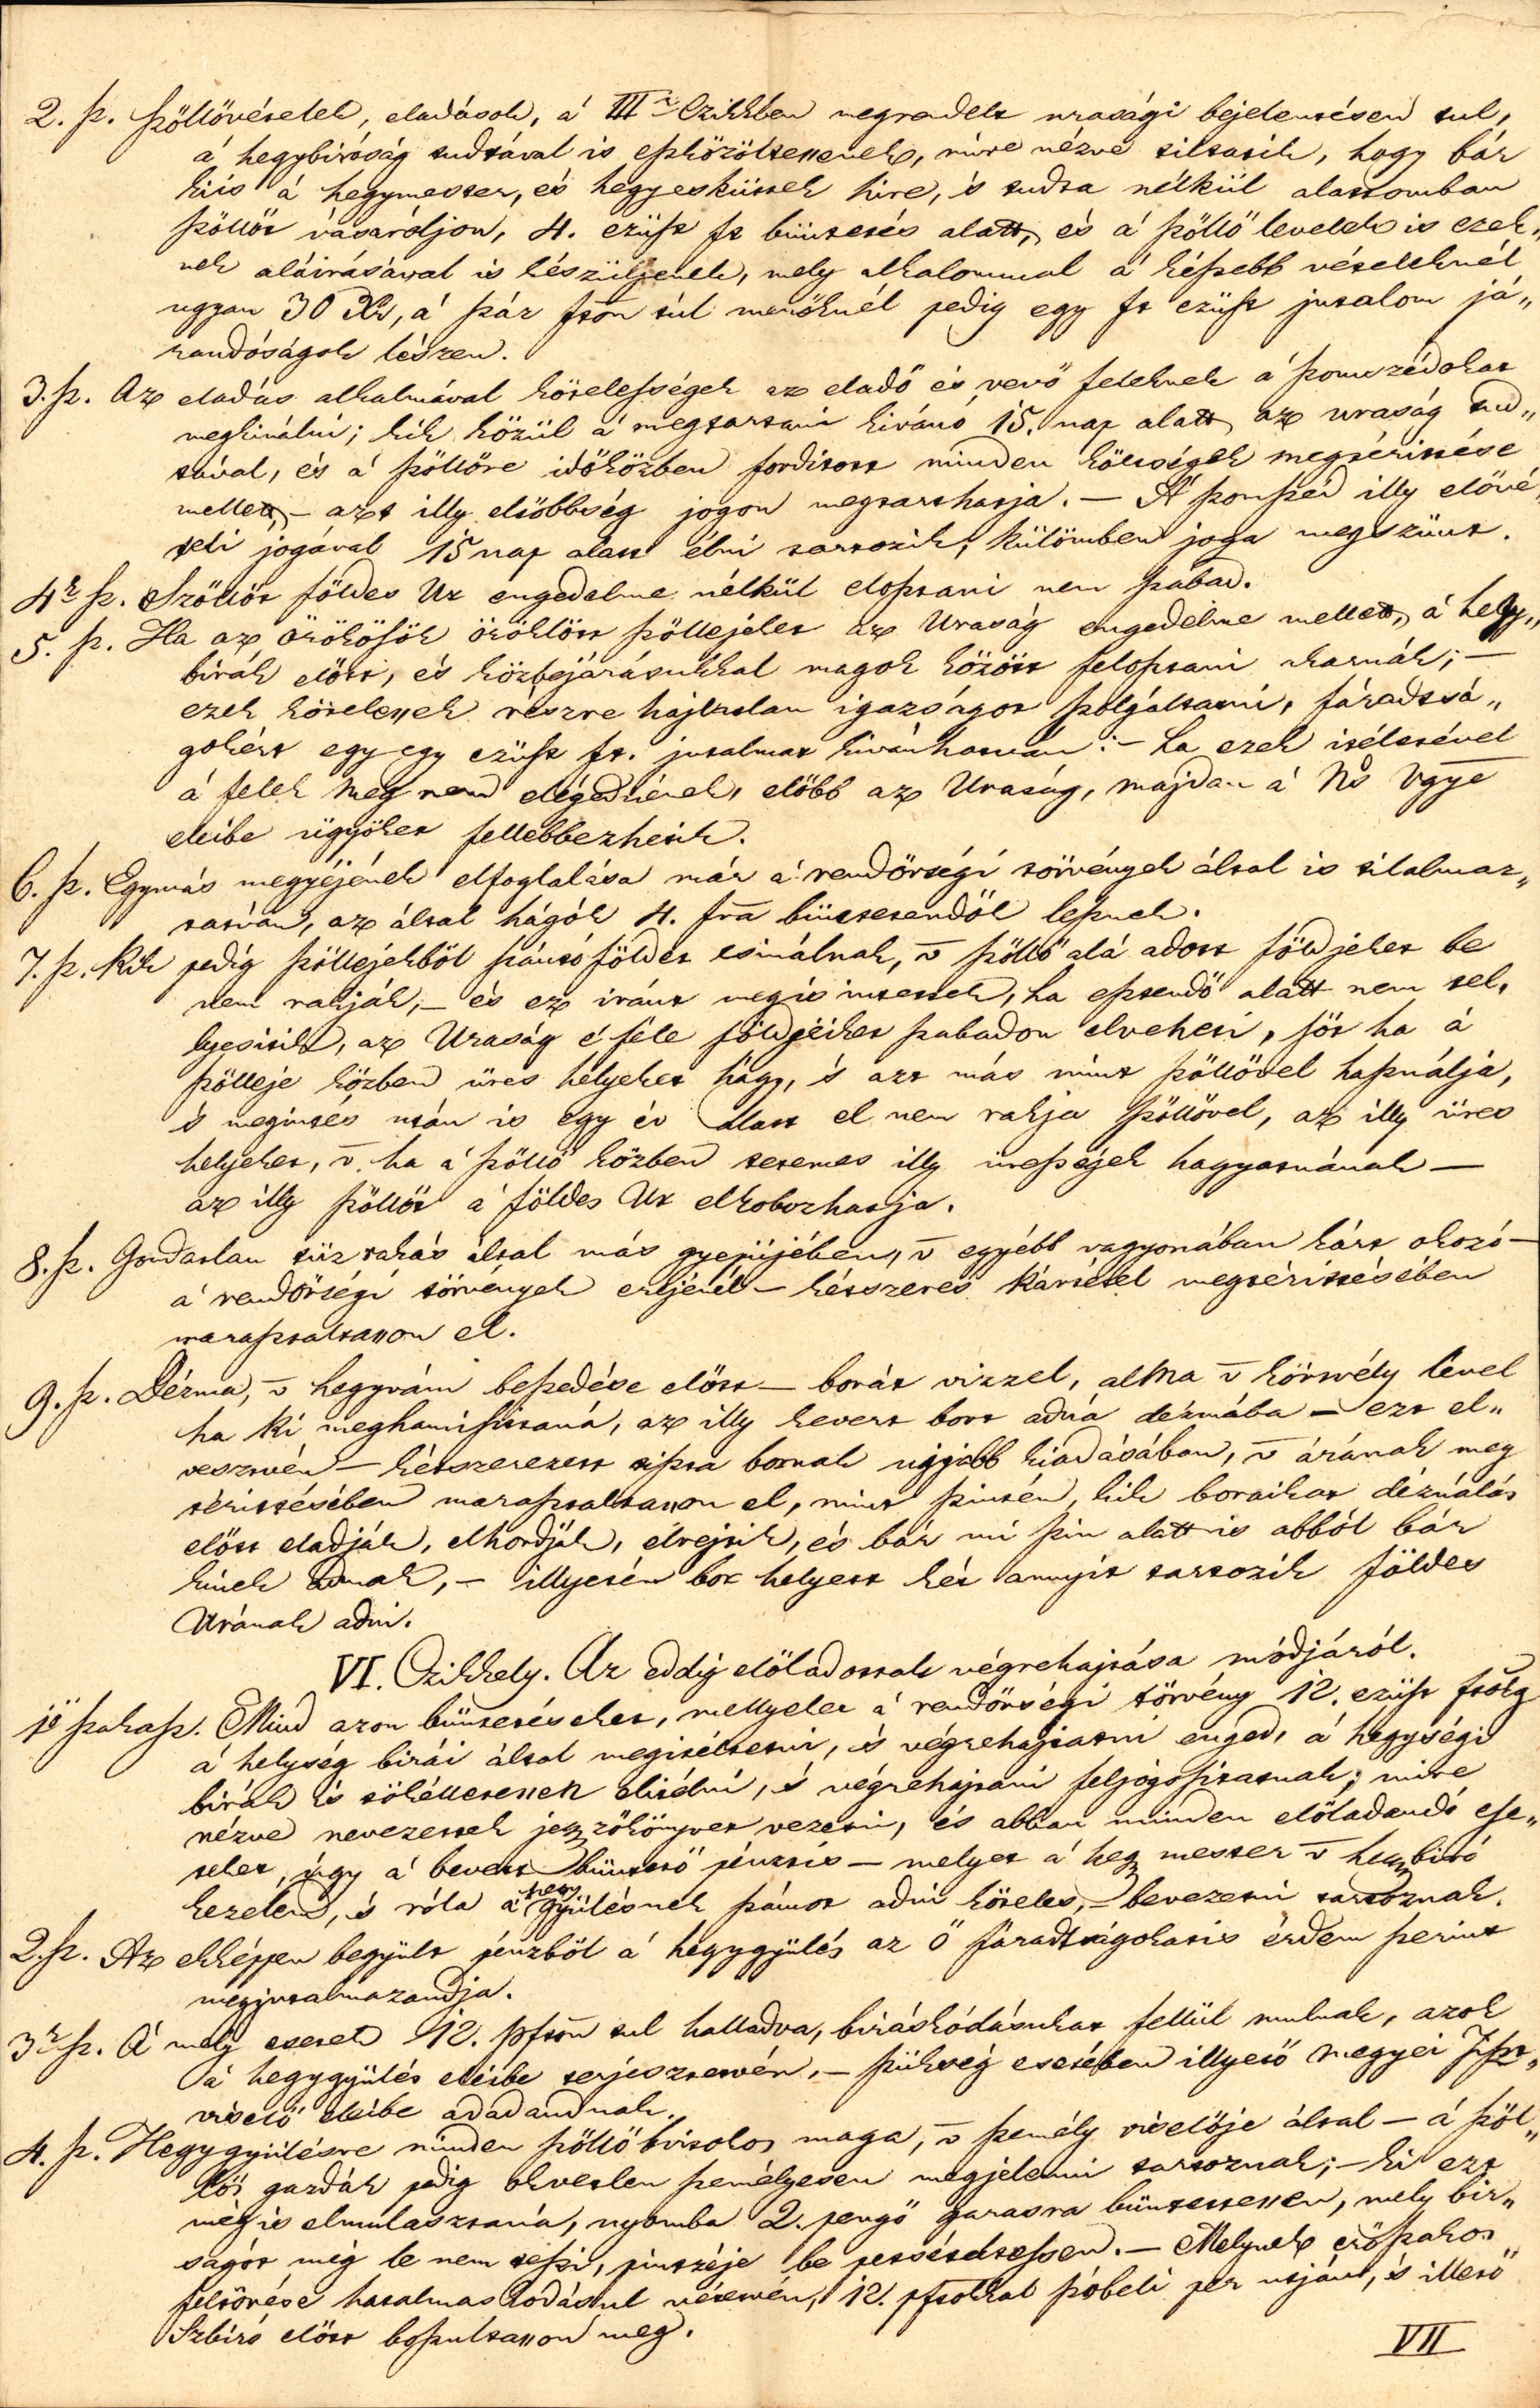 2. sz. Szöllövételek, eladások, á IIIr Czikkben megrendelt urasági bejelentésen tul,
á hegybiróság tudtával is eszközöltessenek, mire nézve tiltatik, hogy bár
kiis á hegymester, és hegyesküttek hire, 's tudta nélkül alattomban
szöllöt vásároljon, 4. ezüst ft büntetés alatt, és á szöllö levelek is ezek„
nek aláirásával is készüljenek, mely alkalommal á kissebb vételeknél
ugyan 30 Xr, á száz fton túl menöknél pedig egy ft ezüst jutalom já„
randóságok lészen.
3. sz. Az eladás alkalmával kötelességek az eladó és vevö feleknek á szomszédokat
megkinálni; kik közül á megtartani kivánó 15. nap alatt az uraság tud„
tával, és á szöllöre időközben forditott minden költségek megtéritése
mellett, – azt illy elsöbbség jogon megtarthatja. – A' szomszéd illy elövé„
teli jogával 15 nap alatt élni tartozik, külömben joga megszünt.
4r sz. Szöllöt földes Ur engedelme nélkül elosztani nem szabad.
5. sz. Ha az örökösök öröklött szöllejeket az Uraság engedelme mellett, á hegy„
birák elött, és közbejárásukkal magok között felosztani akarnák; –
ezek kötelesek részre hajlatlan igazságot szolgáltatni, fáradtsá„
gokért egy egy ezüst ft. jutalmat kivánhatván: – ha ezek itéletével
á felek meg nem elégednének, elöbb az Uraság, majdan á Ns Vgye
eleibe ügyöket fellebbezhetik.
6. sz. Egymás megyéjének elfoglalása már á rendörségi törvények által is tilalmaz„
tatván, az által hágók 4. ftra büntetendök lesznek.
7. sz. Kik pedig szöllejekböl szántó földet csinálnak, v szöllö alá adott földjeket be
nem rakják, – és ez iránt megis intettek, ha esztendö alatt nem tel„
lyesitik, az Uraság e féle földjeiket szabadon elveheti, söt ha á
szölleje közben üres helyeket hágy, 's azt más mint szöllövel használja,
's megintés után is egy év alatt el nem rakja szöllövel, az illy üres
helyeket, v. ha á szöllö közben tetemes illy ürességek hagyatnának –
az illy szöllöt á földes Ur elkobozhatja.
8. sz. Gondatlan tüz rakás által más gyepüjében, v egyébb vagyonában kárt okozó –
á rendörségi törvények erejénél – kétszeres kártétel megtéritésében
marasztaltasson el.
9. sz. Dézma, v hegyvám beszedése elött – borát vizzel, alma v körtvély lével
ha ki meghamisitaná, az illy kevert bort adná dézmába – ezt el„
vesztvén – kétszerezett tiszta bornak ujjabb kiadásában, v árának meg
téritésében marasztaltasson el, mint szintén, kik boraikat dézmálás
elött eladják, elhordják, elrejtik, és bár mi szin alatt is abból bár
kinek adnak, – illyetén bor helyett két annyit tartozik földes
Urának adni.
VI. Czikkely. Az eddig elöladottak végrehajtása módjáról.
1ö szakasz. Mind azon büntetéseket, mellyeket á rendörségi törvény 12. ezüst ftolg
á helység birái által megitéltetni, 's végrehajtatni enged, á hegységi
birák is tökélletessen elitélni, 's végrehajtani feljogositatnak; mire
nézve nevezettek jegyzökönyvet vezetni, és abban minden elöladandó ese„
teket, úgy á bevett büntetö pénztis – melyet á hegy mester v hegybiró
kezelend, 's róla á hegy gyülésnek számot adni köteles, – bevezetni tartoznak.
2. sz. Az ekképpen begyült pénzböl á hegygyülés az ö fáradtságokatis érdem szerint
megjutalmazandja.
3r sz. A' mely esetek 12. pfton tul halladva, biráskódásukat fellül mulnak, azok
á hegygyülés eleibe terjesztetvén, – szükség esetében illyetö megyei Tiszt„
viselö eleibe adadandnak.
4. sz. Hegygyülésre minden szöllö birtokos maga, v személy viselöje által – á szöl„
lös gazdák pedig okvetlen személyesen megjelenni tartoznak; – ki ezt
mégis elmulasztaná, nyomba 2. pengö garasra büntettessen, mely bir„
ságot míg le nem teszi, pintzéje be petsételtessen. – Melynek eröszakos
feltörése hatalmaskodásul vétetvén, 12. pftokkal szóbeli per utján, 's illetö
Szbiró elött boszultasson meg.
VII